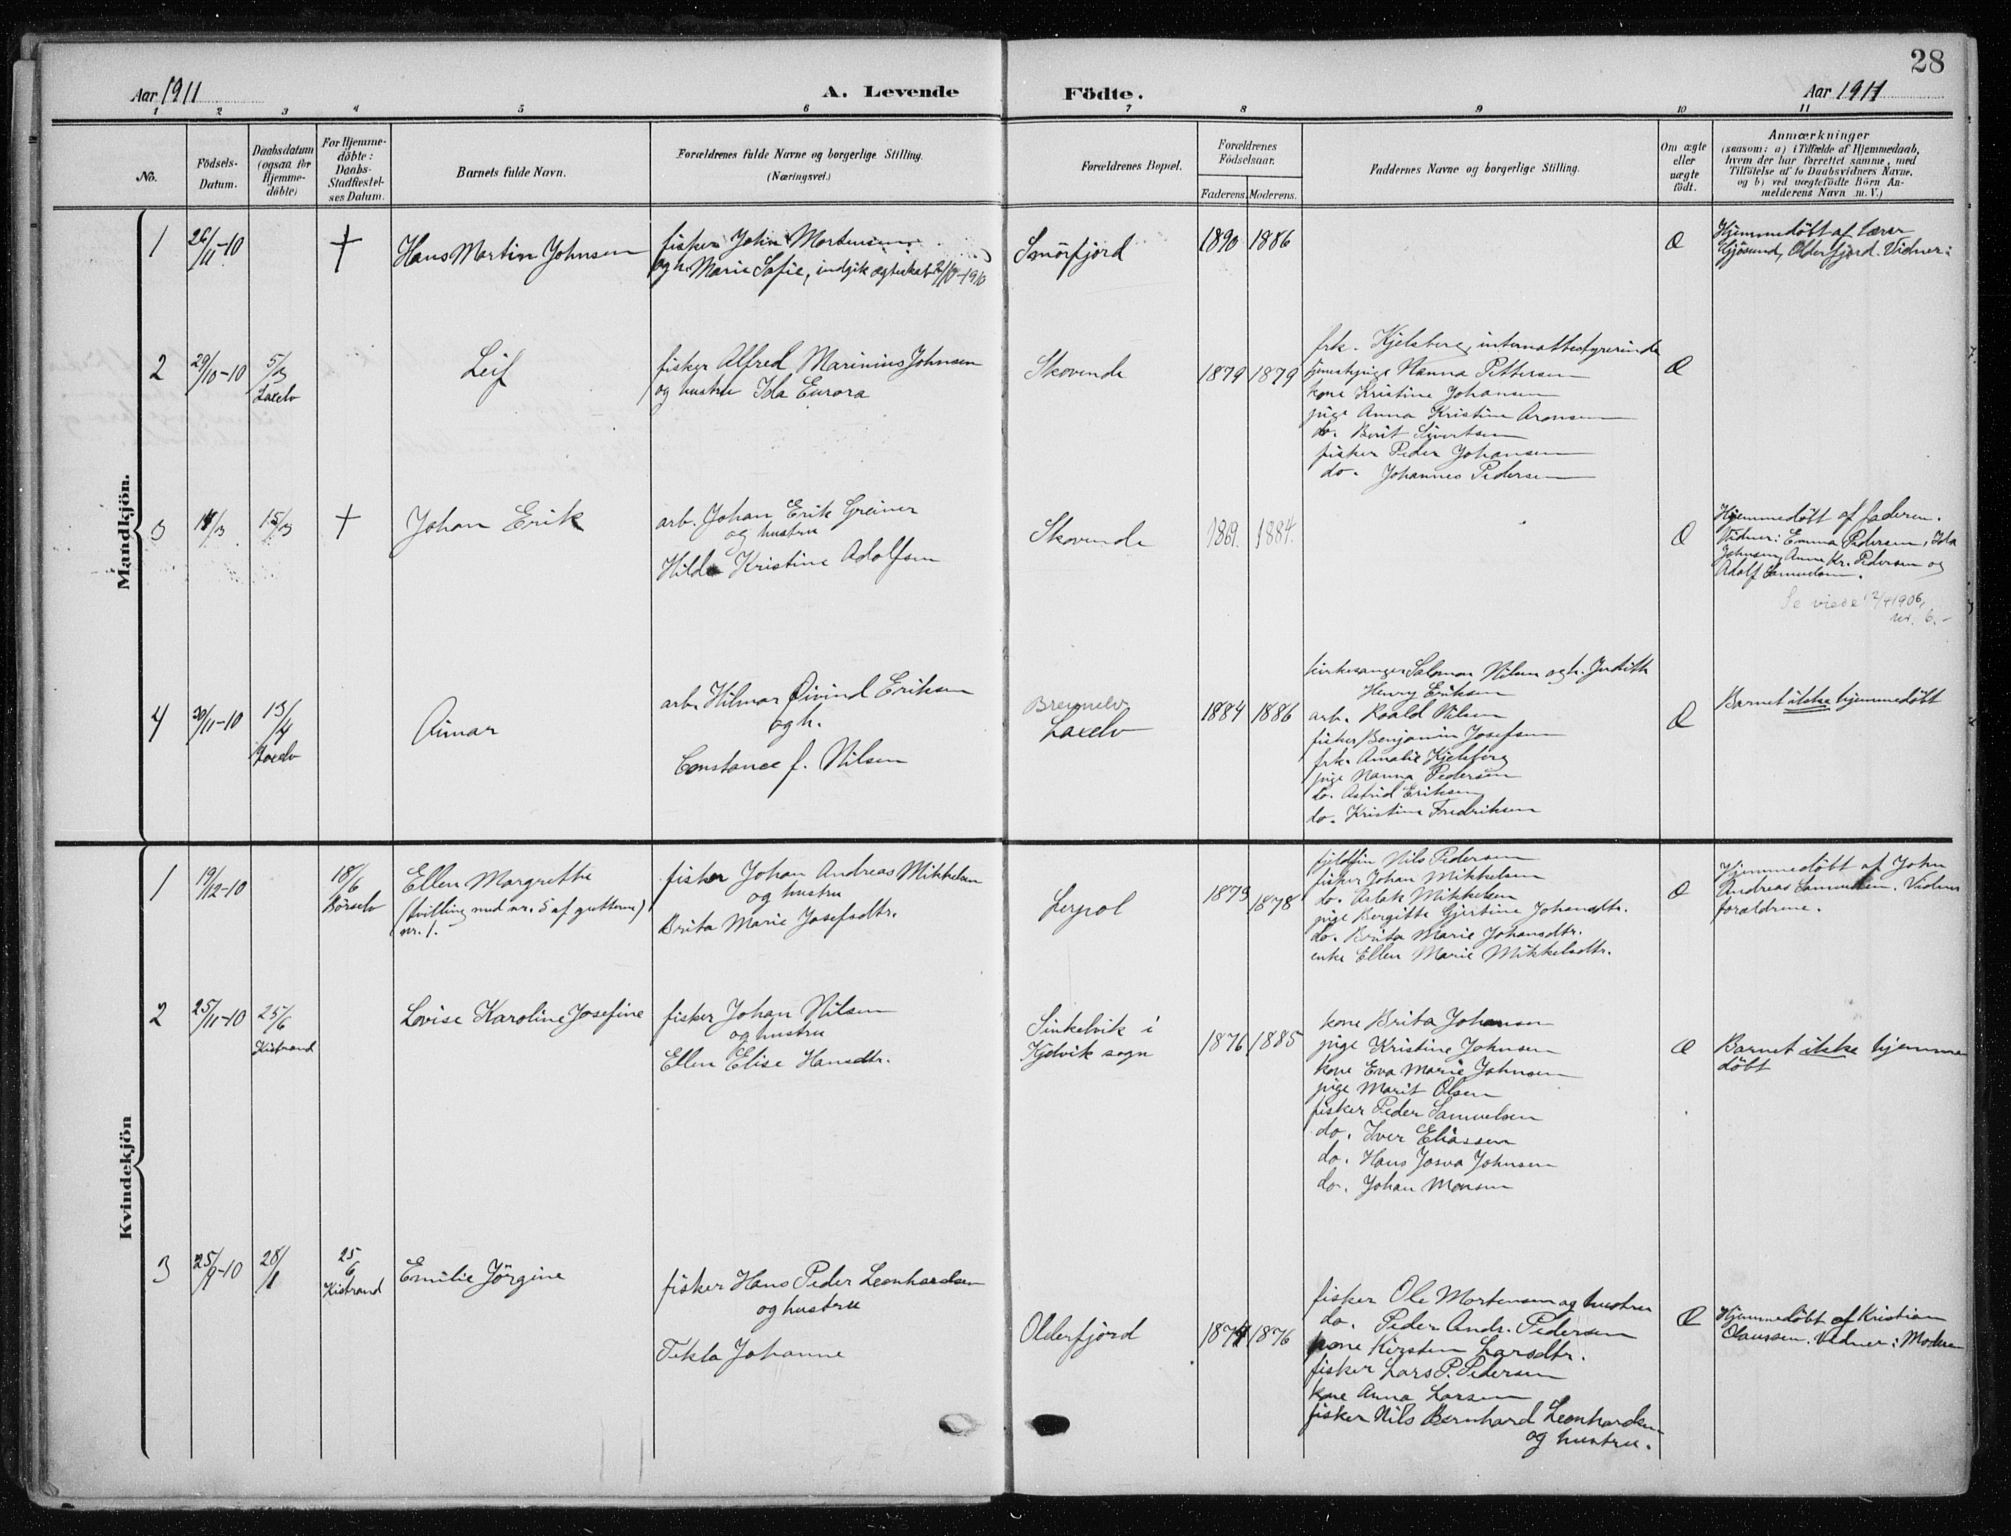 28
Aar 1911
A. Levende
Födte.
Aar 1911
1 2 3 4 5 6 7 8 9 10 11
No.
Födsels-
Datum.
Daabsdatum
(ogsaa for
Hjemme-
döbte)
For Hjemme-
döbte:
Daabs-
Stadfæstel-
ses Datum.
Barnets fulde Navn.
Forældrenes fulde Navne og borgerlige Stilling.
(Næringsvei.)
Forældrenes Bopæl.
Forældrenes
Födselsaar.
Faderens. Moderens.
Faddernes Navne og borgerlige Stilling.
Om ægte
eller
uægte
födt.
Anmærkninger
(saasom: a) i Tilfælde af Hjemmedaab,
hvem der har forrettet samme, med
Tilföielse af to Daabsvidners Navne.
og b) ved uægtefödte Börn An-
melderens Navn m. V.)
Mandkjön.
1
26/11-10
†
Hans Martin Johnsen
fisker John Mortensen
og h. Marie Sofie, indgik ægteskab 2/10-1910
Smörfjord
1890 1886
Æ
Hjemmedöbt af lærer
Olderfjord. Vidner:
2
29/10-10
5/3
Laxelv
Leif
fisker Alfred Marinius Johnsen
og hustru Ida Eurora
Skovende
1879 1879
frk. Kjelsberg, internatbestyrerinde
tjenestepige Nanna Pettersen
kone Kristine Johansen
pige Anna Kristine Aronsen
do. Berit Sivertsen
fisker Peder Johansen
do. Johannes Pedersen
Æ
3
14/3
15/3
†
Johan Erik
arb. Johan Erik Greiner
og hustru
Hilda Kristine Adolfsen
Skovende
1869. 1884.
Æ
Hjemmedöbt af faderen.
Vidner: Emma Pedersen, Ida
Johnsen, Anna Kr. Pedersen og
Adolf Samuelsen.
Se viede 12/4 1906,
nr. 6.-
4
30/11-10
13/4
Laxelv
Aimar
arb. Hilmar Öivind Eriksen
og h.
Constance f. Nilsen
Brennelv
Laxelv
1884 1886
kirkesanger Salomon Nilsen og h. Judith
Henry Eriksen
arb. Roald Nilsen
fisker Benjamin Josefsen
frk. Amalie Kjelsberg
pige Nanna Pedersen
do. Astrid Eriksen
do. Kristine Fredriksen
Æ
Barnet ikke hjemmedöbt
Kvindekjön
1
19/12-10
18/6
Börselv
Ellen Margrethe
(tvilling med nr. 5 af guttene)
nr. 1.
fisker Johan Andreas Mikkelsen
og hustru
Brita Marie Josefsdtr.
Lerpol
1879 1878
fjeldfin Nils Pedersen
fisker Johan Mikkelsen
do. Aslak Mikkelsen
pige Bergitte Gjertine Johansdtr.
do. Brita Marie Johansdtr.
enke Ellen Marie Mikkelsdtr.
Æ
Hjemmedöbt af John
Andreas Samuelsen. Vidner
forældrene.
2
25/11-10
25/6
Kistrand
Lovise Karoline Josefine
fisker Johan Nilsen
og hustru
Ellen Elise Hansdtr.
Sinkelvik i
Kjelvik sogn
1876 1885
kone Brita Johansen
pige Kristine Johnsen
kone Eva Marie Johnsen
pige Marit Olsen
fisker Peder Samuelsen
do. Iver Eliassen
do. Hans Josva Johnsen
do. Johan Monsen
Æ
Barnet ikke hjemme
döbt
3
25/9-10
28/1
25/6
Kistrand
Emilie Jörgine
fisker Hans Peder Leonhardsen
og hustru
Tekla Johanne
Olderfjord
1874 1876
fisker Ole Mortensen og hustru
do. Peder Andr. Pedersen
kone Kirsten Larsdtr.
fisker Lars P. Pedersen
kone Anna Larsen
fisker Nils Bernhard Leonhardsen
og hustru.
Æ
Hjemmedöbt af Kristian
Olaussen. Vidner: Moderen